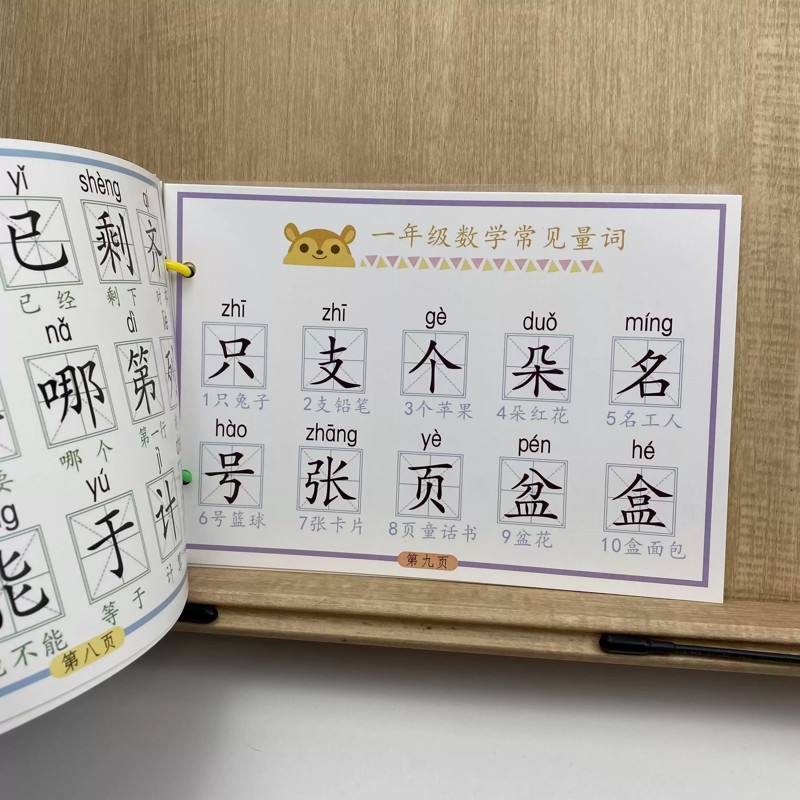 yǐ shèng
已 剩 齐
已经 剩下
nǎ dì
哪 第
哪个 第一行
yú
能 于 计
不能 等于 计
第八页
一年级数学常见量词
zhī zhī gè duǒ míng
只 支 个 朵 名
1只兔子 2支铅笔 3个苹果 4朵红花 5名工人
hào zhāng yè pén hé
号 张 页 盆 盒
6号篮球 7张卡片 8页童话书 9盆花 10盒面包
第九页